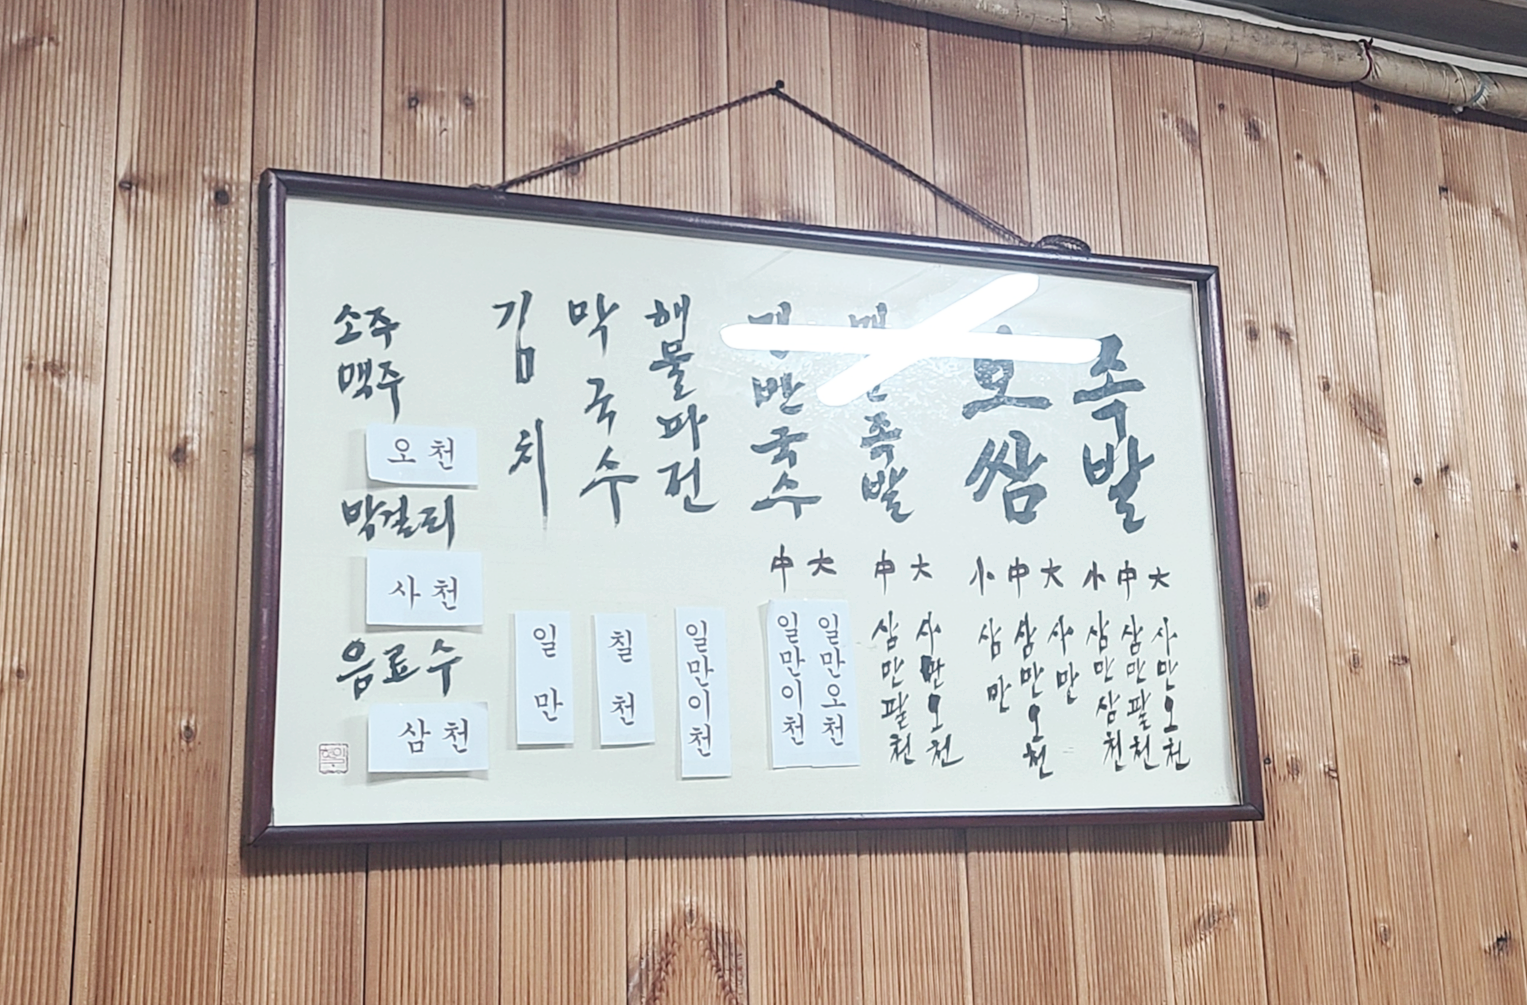 족발
小 中 大
삼만삼천
삼만팔천
사만오천
오쌈
小 中 大
삼만
삼만오천
사만
족발
中 大
삼만팔천
사만오천
반국수
中 大
일만이천
일만오천
해물파전
일만이천
막국수
칠천
김치
일만
소주
맥주
오천
막걸리
사천
음료수
삼천